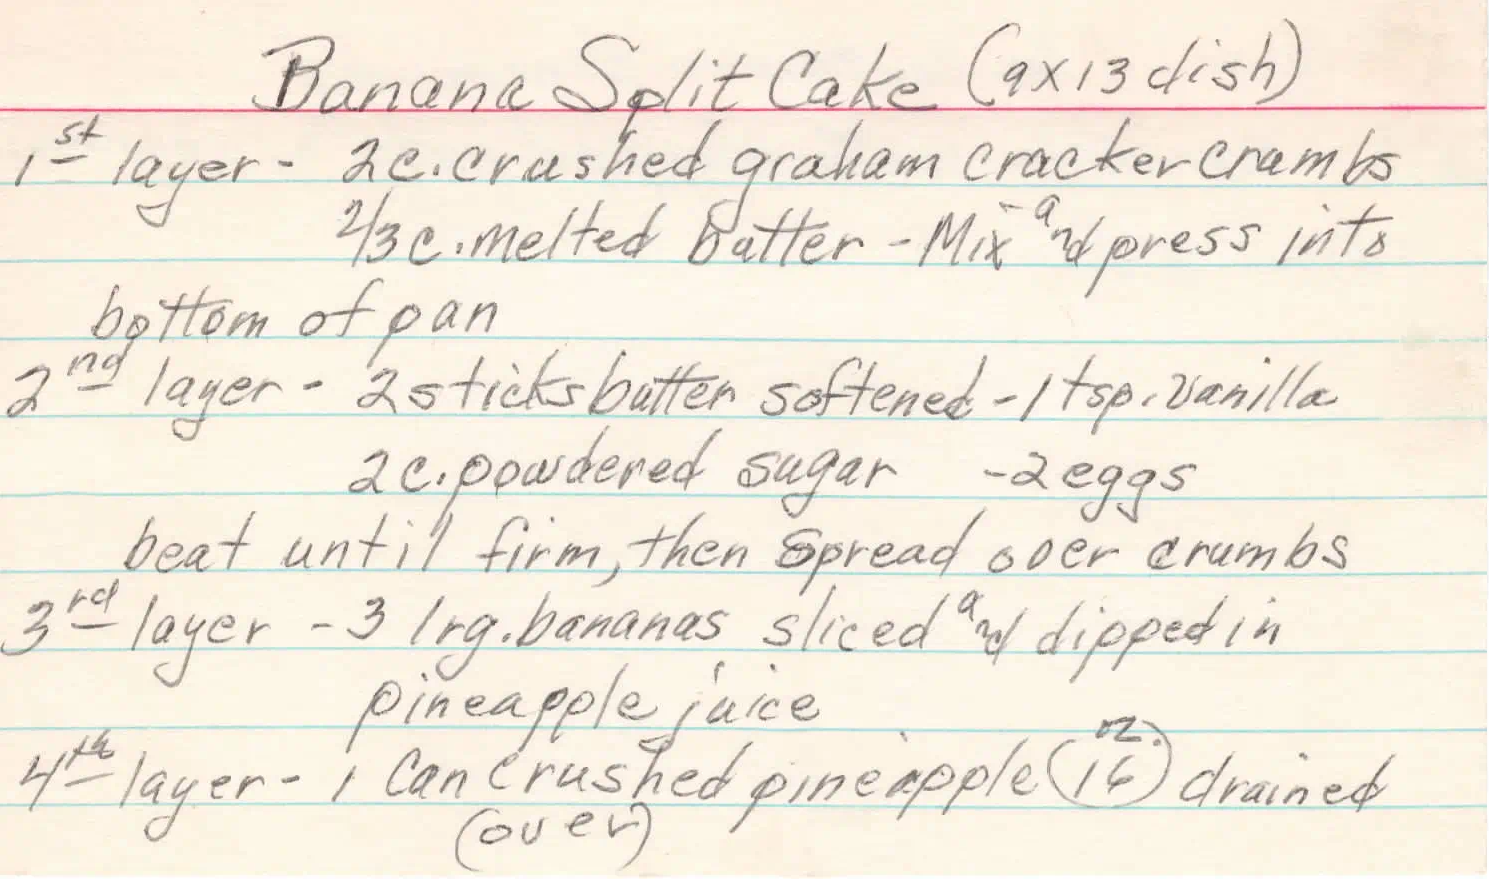 Banana Split Cake (9x13 dish)
1st layer - 2c. crushed graham cracker crumbs
2/3 c. melted butter - Mix and press into
bottom of pan
2nd layer - 2 sticks butter softened - 1 tsp. vanilla
2c. powdered sugar - 2 eggs
beat until firm, then spread over crumbs
3rd layer - 3 lrg. bananas sliced and dipped in
pineapple juice
4th layer - 1 can crushed pineapple (16 oz.) drained
(over)